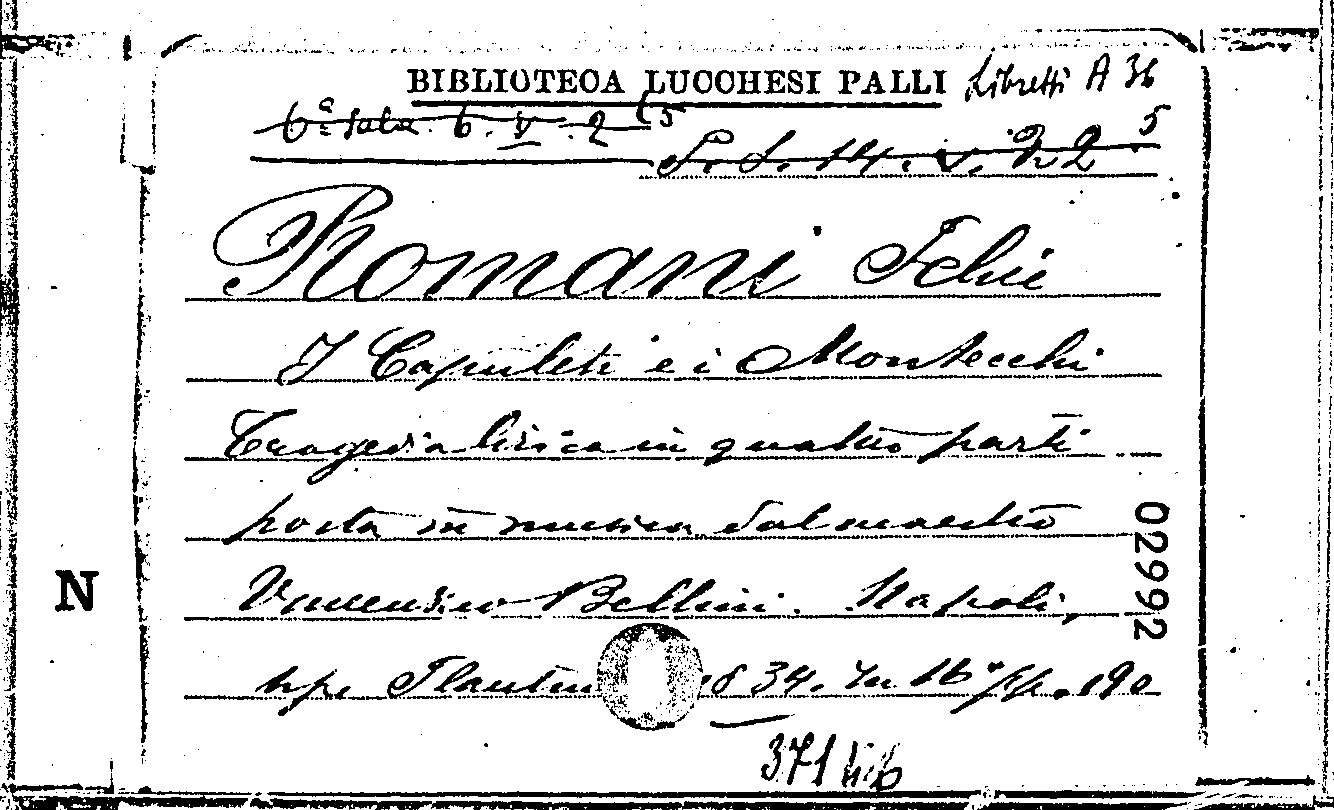 BIBLIOTECA LUCCHESI PALLI Libretti A 36
6ª Sala. 6. V. 2 (5
S. S. 14. V. 22 5
Romani Felice
I Capuleti e i Montecchi
Tragedia lirica in quattro parti
posta in musica dal maestro
Vincenzo Bellini. Napoli,
tip. Flautina 1834. In 16° pp. 190
371 lib
N
02992